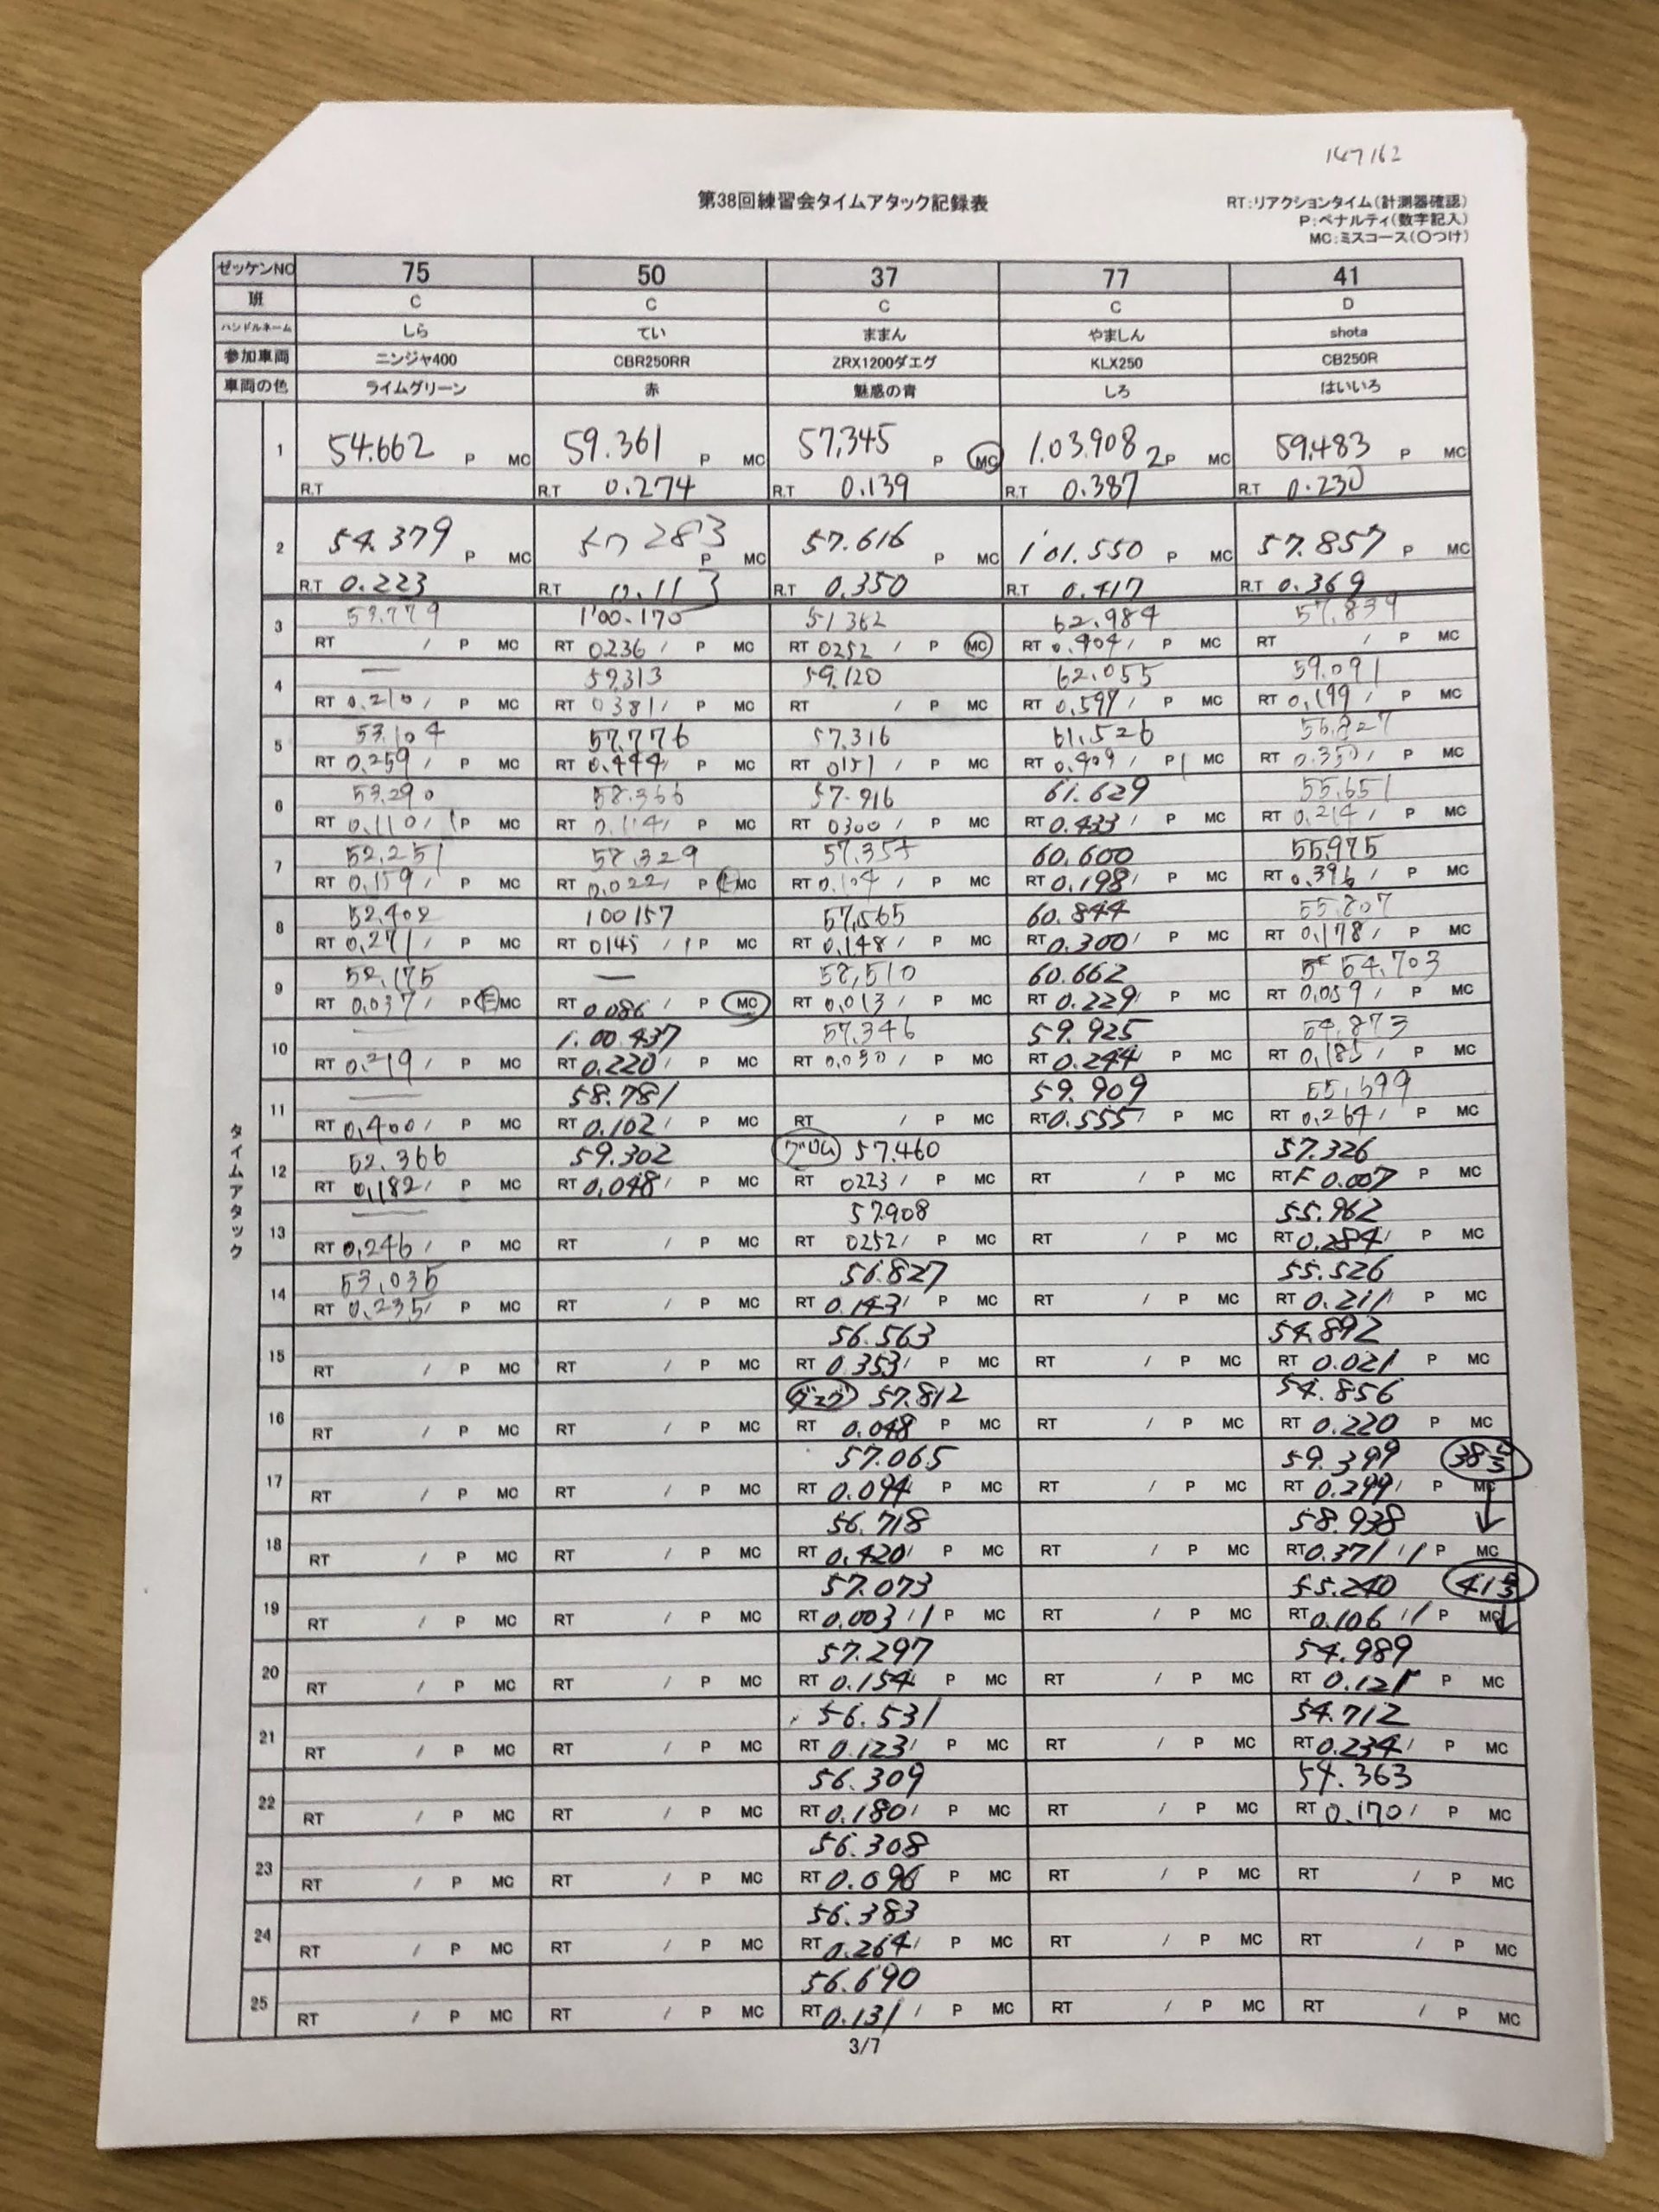 147162
第38回練習会タイムアタック記録表
RT:リアクションタイム(計測器確認)
P:ペナルティ(数字記入)
MC:ミスコース(〇つけ)
ゼッケンNO 75 50 37 77 41
班 C C C C D
ハンドルネーム しら てい ままん やましん shota
参加車両 ニンジャ400 CBR250RR ZRX1200ダエグ KLX250 CB250R
車両の色 ライムグリーン 赤 魅惑の青 しろ はいいろ
タイムアタック
1 54.662 P MC 59.361 P MC 57.345 P MC 1.03.908 2P MC 59.483 P MC
R.T R.T 0.274 R.T 0.139 R.T 0.387 R.T 0.230
2 54.379 P MC 57 283 P MC 57.616 P MC 1'01.550 P MC 57.857 P MC
R.T 0.223 R.T 0.113 R.T 0.350 R.T 0.417 R.T 0.369
3 53.779 1'00.170 51362 62.984 57.839
RT / P MC RT 0236 / P MC RT 0252 / P MC RT 0.404 / P MC RT / P MC
4 — 59313 59.120 62.055 59.091
RT 0.210 / P MC RT 0381 / P MC RT / P MC RT 0.597 / P MC RT 0.199 / P MC
5 53.104 57.776 57.316 61.526 55.827
RT 0.259 / P MC RT 0.444 / P MC RT 0151 / P MC RT 0.409 / P1 MC RT 0.350 / P MC
6 53.290 58.366 57.916 61.629 55.651
RT 0.110 / 1P MC RT 0.114 / P MC RT 0300 / P MC RT 0.433 / P MC RT 0.214 / P MC
7 52.251 58.329 57.357 60.600 55.975
RT 0.159 / P MC RT 0.022 / P MC RT 0.104 / P MC RT 0.198 / P MC RT 0.396 / P MC
8 52.402 100157 57.565 60.844 55.807
RT 0.271 / P MC RT 0145 / 1P MC RT 0.148 / P MC RT 0.300 / P MC RT 0.178 / P MC
9 52.175 — 58.510 60.662 54.703
RT 0.037 / P MC RT 0.086 / P MC RT 0.013 / P MC RT 0.229 / P MC RT 0.059 / P MC
10 — 1.00.437 57.346 59.925 54.873
RT 0.219 / P MC RT 0.220 / P MC RT 0.030 / P MC RT 0.244 / P MC RT 0.185 / P MC
11 — 58.781 59.909 55.599
RT 0.400 / P MC RT 0.102 / P MC RT / P MC RT 0.555 / P MC RT 0.264 / P MC
12 52.366 59.302 グロム 57.460 57.326
RT 0.182 / P MC RT 0.048 / P MC RT 0223 / P MC RT / P MC RT F 0.007 P MC
13 — 57.908 55.962
RT 0.246 / P MC RT / P MC RT 0252 / P MC RT / P MC RT 0.284 / P MC
14 53.035 56.827 55.526
RT 0.235 / P MC RT / P MC RT 0.143 / P MC RT / P MC RT 0.211 / P MC
15 56.563 54.892
RT / P MC RT / P MC RT 0.353 / P MC RT / P MC RT 0.021 P MC
16 ダエグ 57.812 54.856
RT / P MC RT / P MC RT 0.048 P MC RT / P MC RT 0.220 P MC
17 57.065 59.399 38号
RT / P MC RT / P MC RT 0.094 P MC RT / P MC RT 0.299 / P MC
18 56.718 58.938 ↓
RT / P MC RT / P MC RT 0.420 / P MC RT / P MC RT 0.371 / 1P MC
19 57.073 55.240 41号
RT / P MC RT / P MC RT 0.003 / 1P MC RT / P MC RT 0.106 / 1P MC ↓
20 57.297 54.989
RT / P MC RT / P MC RT 0.154 P MC RT / P MC RT 0.125 P MC
21 56.531 54.712
RT / P MC RT / P MC RT 0.123 / P MC RT / P MC RT 0.234 / P MC
22 56.309 54.363
RT / P MC RT / P MC RT 0.180 / P MC RT / P MC RT 0.170 / P MC
23 56.308
RT / P MC RT / P MC RT 0.096 P MC RT / P MC RT / P MC
24 56.383
RT / P MC RT / P MC RT 0.264 / P MC RT / P MC RT / P MC
25 56.690
RT / P MC RT / P MC RT 0.131 / P MC RT / P MC RT / P MC
3/7